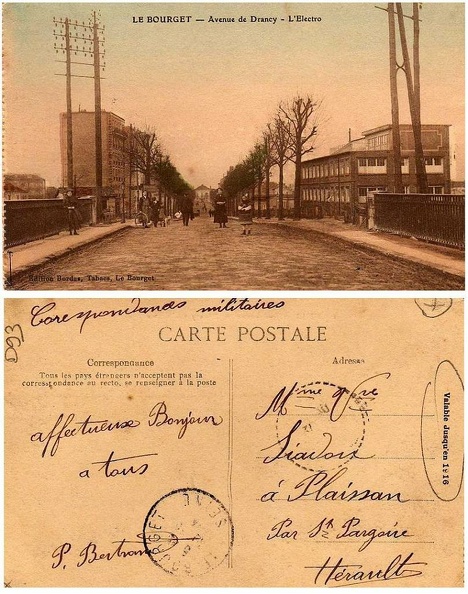 LE BOURGET — Avenue de Drancy - L'Electro
Edition Bordes, Tabacs, Le Bourget
Correspondances militaires
D93
CARTE POSTALE
Correspondance
Tous les pays étrangers n'acceptent pas la
correspondance au recto, se renseigner à la poste
affectueux Bonjour
a tous
P. Bertrand
LE BOURGET
Adresse
Mme Vve
Liadoix
à Plaissan
Par St Pargoire
Hérault
Valable jusqu'en 1916